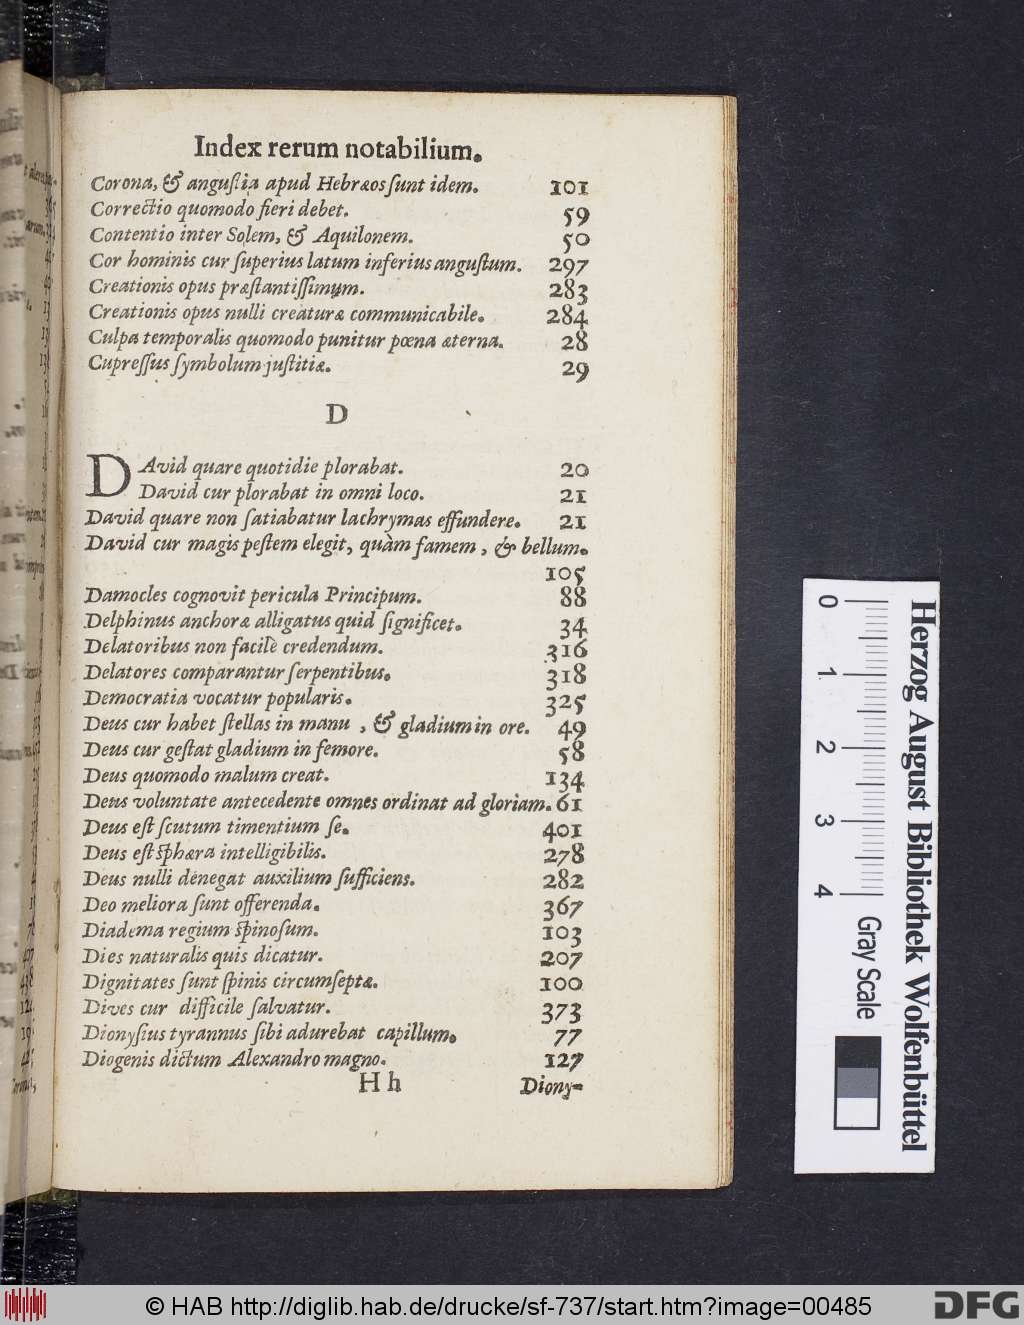 Index rerum notabilium.
Corona, & anguſtia apud Hebræos ſunt idem. 101
Correctio quomodo fieri debet. 59
Contentio inter Solem, & Aquilonem. 50
Cor hominis cur ſuperius latum inferius anguſtum. 297
Creationis opus præſtantiſſimum. 283
Creationis opus nulli creaturæ communicabile. 284
Culpa temporalis quomodo punitur pœna æterna. 28
Cupreſſus ſymbolum juſtitiæ. 29
D
DAvid quare quotidie plorabat. 20
David cur plorabat in omni loco. 21
David quare non ſatiabatur lachrymas effundere. 21
David cur magis peſtem elegit, quàm famem, & bellum.
105
Damocles cognovit pericula Principum. 88
Delphinus anchoræ alligatus quid ſignificet. 34
Delatoribus non facilè credendum. 316
Delatores comparantur ſerpentibus. 318
Democratia vocatur popularis. 325
Deus cur habet ſtellas in manu, & gladium in ore. 49
Deus cur geſtat gladium in femore. 58
Deus quomodo malum creat. 134
Deus voluntate antecedente omnes ordinat ad gloriam. 61
Deus eſt ſcutum timentium ſe. 401
Deus eſt ſphæra intelligibilis. 278
Deus nulli denegat auxilium ſufficiens. 282
Deo meliora ſunt offerenda. 367
Diadema regium ſpinoſum. 103
Dies naturalis quis dicatur. 207
Dignitates ſunt ſpinis circumſeptæ. 100
Dives cur difficile ſalvatur. 373
Dionyſius tyrannus ſibi adurebat capillum. 77
Diogenis dictum Alexandro magno. 127
H h Diony-
0 1 2 3 4
Gray Scale
Herzog August Bibliothek Wolfenbüttel
© HAB http://diglib.hab.de/drucke/sf-737/start.htm?image=00485
DFG